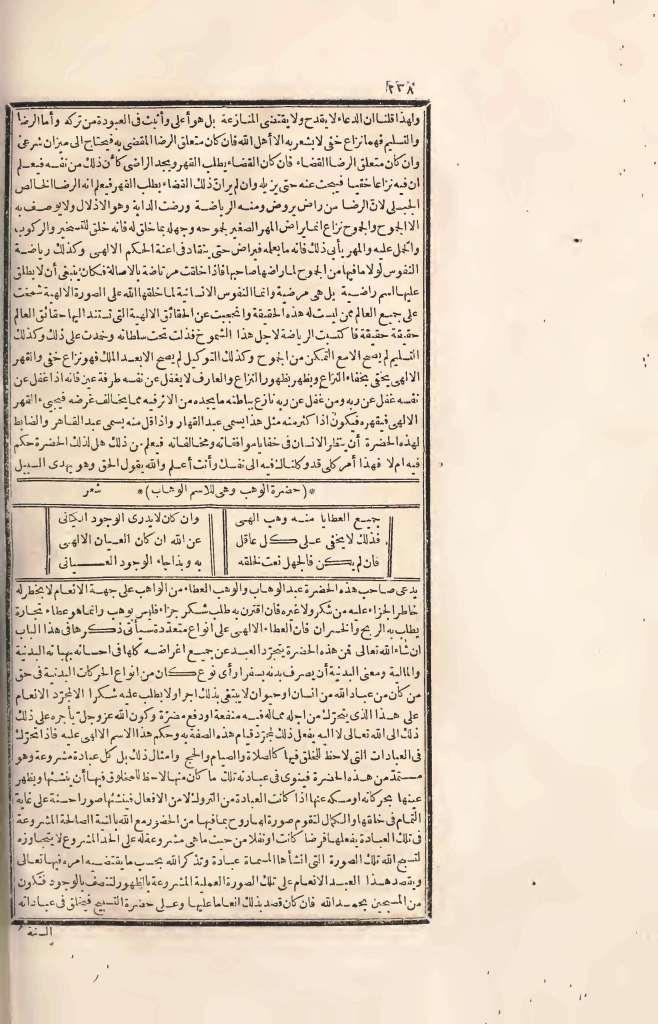 ٢٣٨
ولهذا قلنا ان الدعاء لا يقدح ولا يقتضى المنازعة بل هو أعلى وأثبت فى العبودة من تركه وأما الرضا
والتسليم فهما نزاع خفى لا يشعر به الا أهل الله فان كان متعلق الرضا المقضى به فيحتاج الى ميزان شرعى
وان كان متعلق الرضا القضاء فان كان القضاء يطلب القهر ويجد الراضى كأن ذلك من نفسه فيعلم
ان فيه نزاعا خفيا فيبحث عنه حتى يزيله وان لم ير ان ذلك القضاء يطلب القهر فيعلم انه الرضا الخالص
الجبلى لان الرضا من راض يروض ومنه الرياضة ورضت الدابة وهو الاذلال ولا يوصف به
الا الجموح والجموح نزاع انما يراض المهر الصغير لجموحه وجهله بما خلق له فانه خلق للتسخير والركوب
والحمل عليه والمهر يأبى ذلك فانه ما يعلمه فيراض حتى ينقاد فى اعنة الحكم الالهى وكذلك رياضة
النفوس لولا ما فيها من الجموح لما راضها صاحبها فاذا خلقت مرتاضة بالاصالة فكان ينبغى أن لا يطلق
عليها اسم راضية بل هى مرضية وانما النفوس الانسانية لما خلقها الله على الصورة الالهية شمخت
على جميع العالم ممن ليست له هذه الحقيقة وانحجبت عن الحقائق الالهية التى تستند اليها حقائق العالم
حقيقة حقيقة فاكتسبت الرياضة لاجل هذا الشموخ فذلت تحت سلطانه وحمدت على ذلك وكذلك
التسليم لم يصح الا مع التمكن من الجموح وكذلك التوكيل لم يصح الا بعد الملك فهو نزاع خفى والقهر
الالهى يخفى بخفاء النزاع ويظهر بظهور النزاع والعارف لا يغفل عن نفسه طرفة عين فانه اذا غفل عن
نفسه غفل عن ربه ومن غفل عن ربه نازع بباطنه ما يجده من الاثر فيه مما يخالف غرضه فيجىء القهر
الالهى فيقهره فيكون اذا كثر منه مثل هذا يسمى عبد القهار واذا قل منه يسمى عبد القاهر والضابط
لهذه الحضرة أن ينظر الانسان فى خفايا موافقاته ومخالفاته فيعلم من ذلك هل لذلك الحضرة حكم
فيه ام لا فهذا أمر كلى قد وكلناك فيه الى نفسك وأنت أعلم والله يقول الحق وهو يهدى السبيل
*(حضرة الوهب وهى للاسم الوهاب)* شعر
جميع العطايا منه وهب الهى وان كان لا يدرى الوجود الكيانى
فذلك لا يخفى على كل عاقل عن الله ان كان العيان الالهى
فان لم يكن فالجهل نعت لخلقه به وبذا جاء الوجود العيانى
يدعى صاحب هذه الحضرة عبد الوهاب والوهب العطاء من الواهب على جهة الانعام لا يخطر له
خاطر الجزاء عليه من شكر ولا غيره فان اقترن به طلب شكر جزاء فليس بوهب وانما هو عطاء تجارة
يطلب به الربح والخسران فان العطاء الالهى على انواع متعددة سيأتى ذكرها فى هذا الباب
ان شاء الله تعالى فمن هذه الحضرة يتجرد العبد عن جميع اغراضه كلها فى احسانه بهباته البدنية
والمالية ومعنى البدنية أن يصرف بدنه بسفر او أى نوع كان من انواع الحركات البدنية فى حق
من كان من عباد الله من انسان او حيوان لا يبتغى بذلك اجرا ولا يطلب عليه شكرا الا لمجرد الانعام
على هذا الذى يتحرك من اجله مما له فيه منفعة او دفع مضرة وكون الله عز وجل يأجره على ذلك
ذلك الى الله تعالى لا اليه يفعل ذلك لمجرد قيام هذه الصفة به وحكم هذا الاسم الالهى عليه فاذا تحرك
فى العبادات التى لاحظ للخلق فيها كالصلاة والصيام والحج وامثال ذلك بل كل عبادة مشروعة وهو
مستمد من هذه الحضرة فينوى فى عبادته تلك ما كان منها لاحظ لمخلوق فيها أن ينشئها ويظهر
عينها بحركاته او مسكه عنها اذا كانت العبادة من التروك لا من الافعال فينشئها صورا حسنة على غاية
التمام فى خلقها والكمال لتقوم صورة لها روح بما فيها من الحضور مع الله بالنية الصالحة المشروعة
فى تلك العبادة يفعلها فرضا كانت او نفلا من حيث ما هى مشروعة له على الحد المشروع لا يتجاوزه
لتسبح الله تلك الصورة التى انشأها المسماة عبادة وتذكر الله بحسب ما يقتضيه امره فيها تعالى
ويقصد هذا العبد الانعام على تلك الصورة العملية المشروعة بالظهور لتتصف بالوجود فتكون
من المسبحين بحمد الله فان كان قصد بذلك انعاما عليها وعلى حضرة التسبيح فيخلق فى عباداته